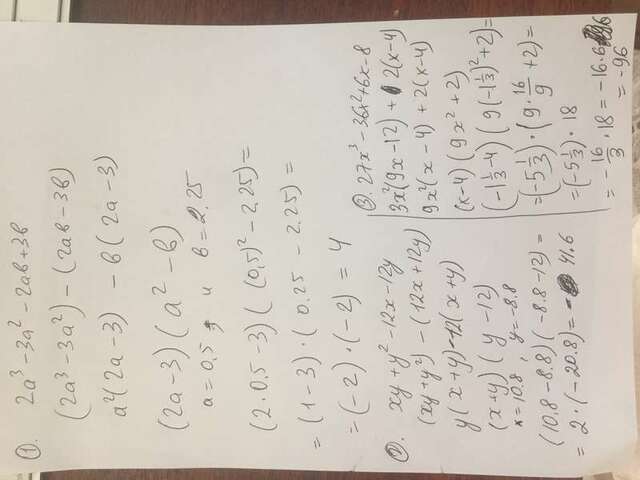 ①. 2a³-3a²-2ab+3b
(2a³-3a²)-(2ab-3b)
a²(2a-3)-b(2a-3)
(2a-3)(a²-b)
a=0,5 и b=2.25
(2·0.5-3)((0,5)²-2.25)=
=(1-3)·(0.25-2.25)=
=(-2)·(-2)=4
②. xy+y²-12x-12y
(xy+y²)-(12x+12y)
y(x+y)-12(x+y)
(x+y)(y-12)
x=10.8, y=-8.8
(10,8-8.8)(-8.8-12)=
=2·(-20.8)=-41.6
③. 27x³-36x²+6x-8
3x²(9x-12)+2(x-4)
9x²(x-4)+2(x-4)
(x-4)(9x²+2)
(-1⅓-4)(9(-1⅓)²+2)=
=(-5⅓)·(9·16/9+2)=
=(-5⅓)·18
=-16/3·18=-16·6=-96
=-96